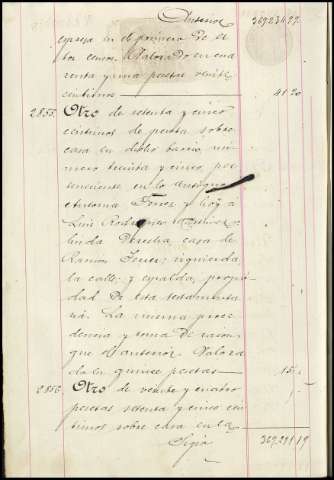 Anterior 36923,4,99
expresa in el primero de es
tos censos. Valorado en cua
renta y una pesetas veinte
centimos 41 20
2855. Otro de setenta y cinco
centimos de peseta sobre
casa en dicho barrio nú
mero treinta y cinco per
teneciente en lo antiguo
Antonia Ferrer y hoy a
Luis Rodriguez
linda derecha casa de
Ramon Ferrer; izquierda
la calle; y espalda, propie
dad de esta testamenta
ria. La misma proce
dencia y toma de razon
que el anterior. Valora
do en quince pesetas 15
2856. Otro de veinte y cuatro
pesetas setenta y cinco cen
timos sobre casa en la
Sigue 369291 19